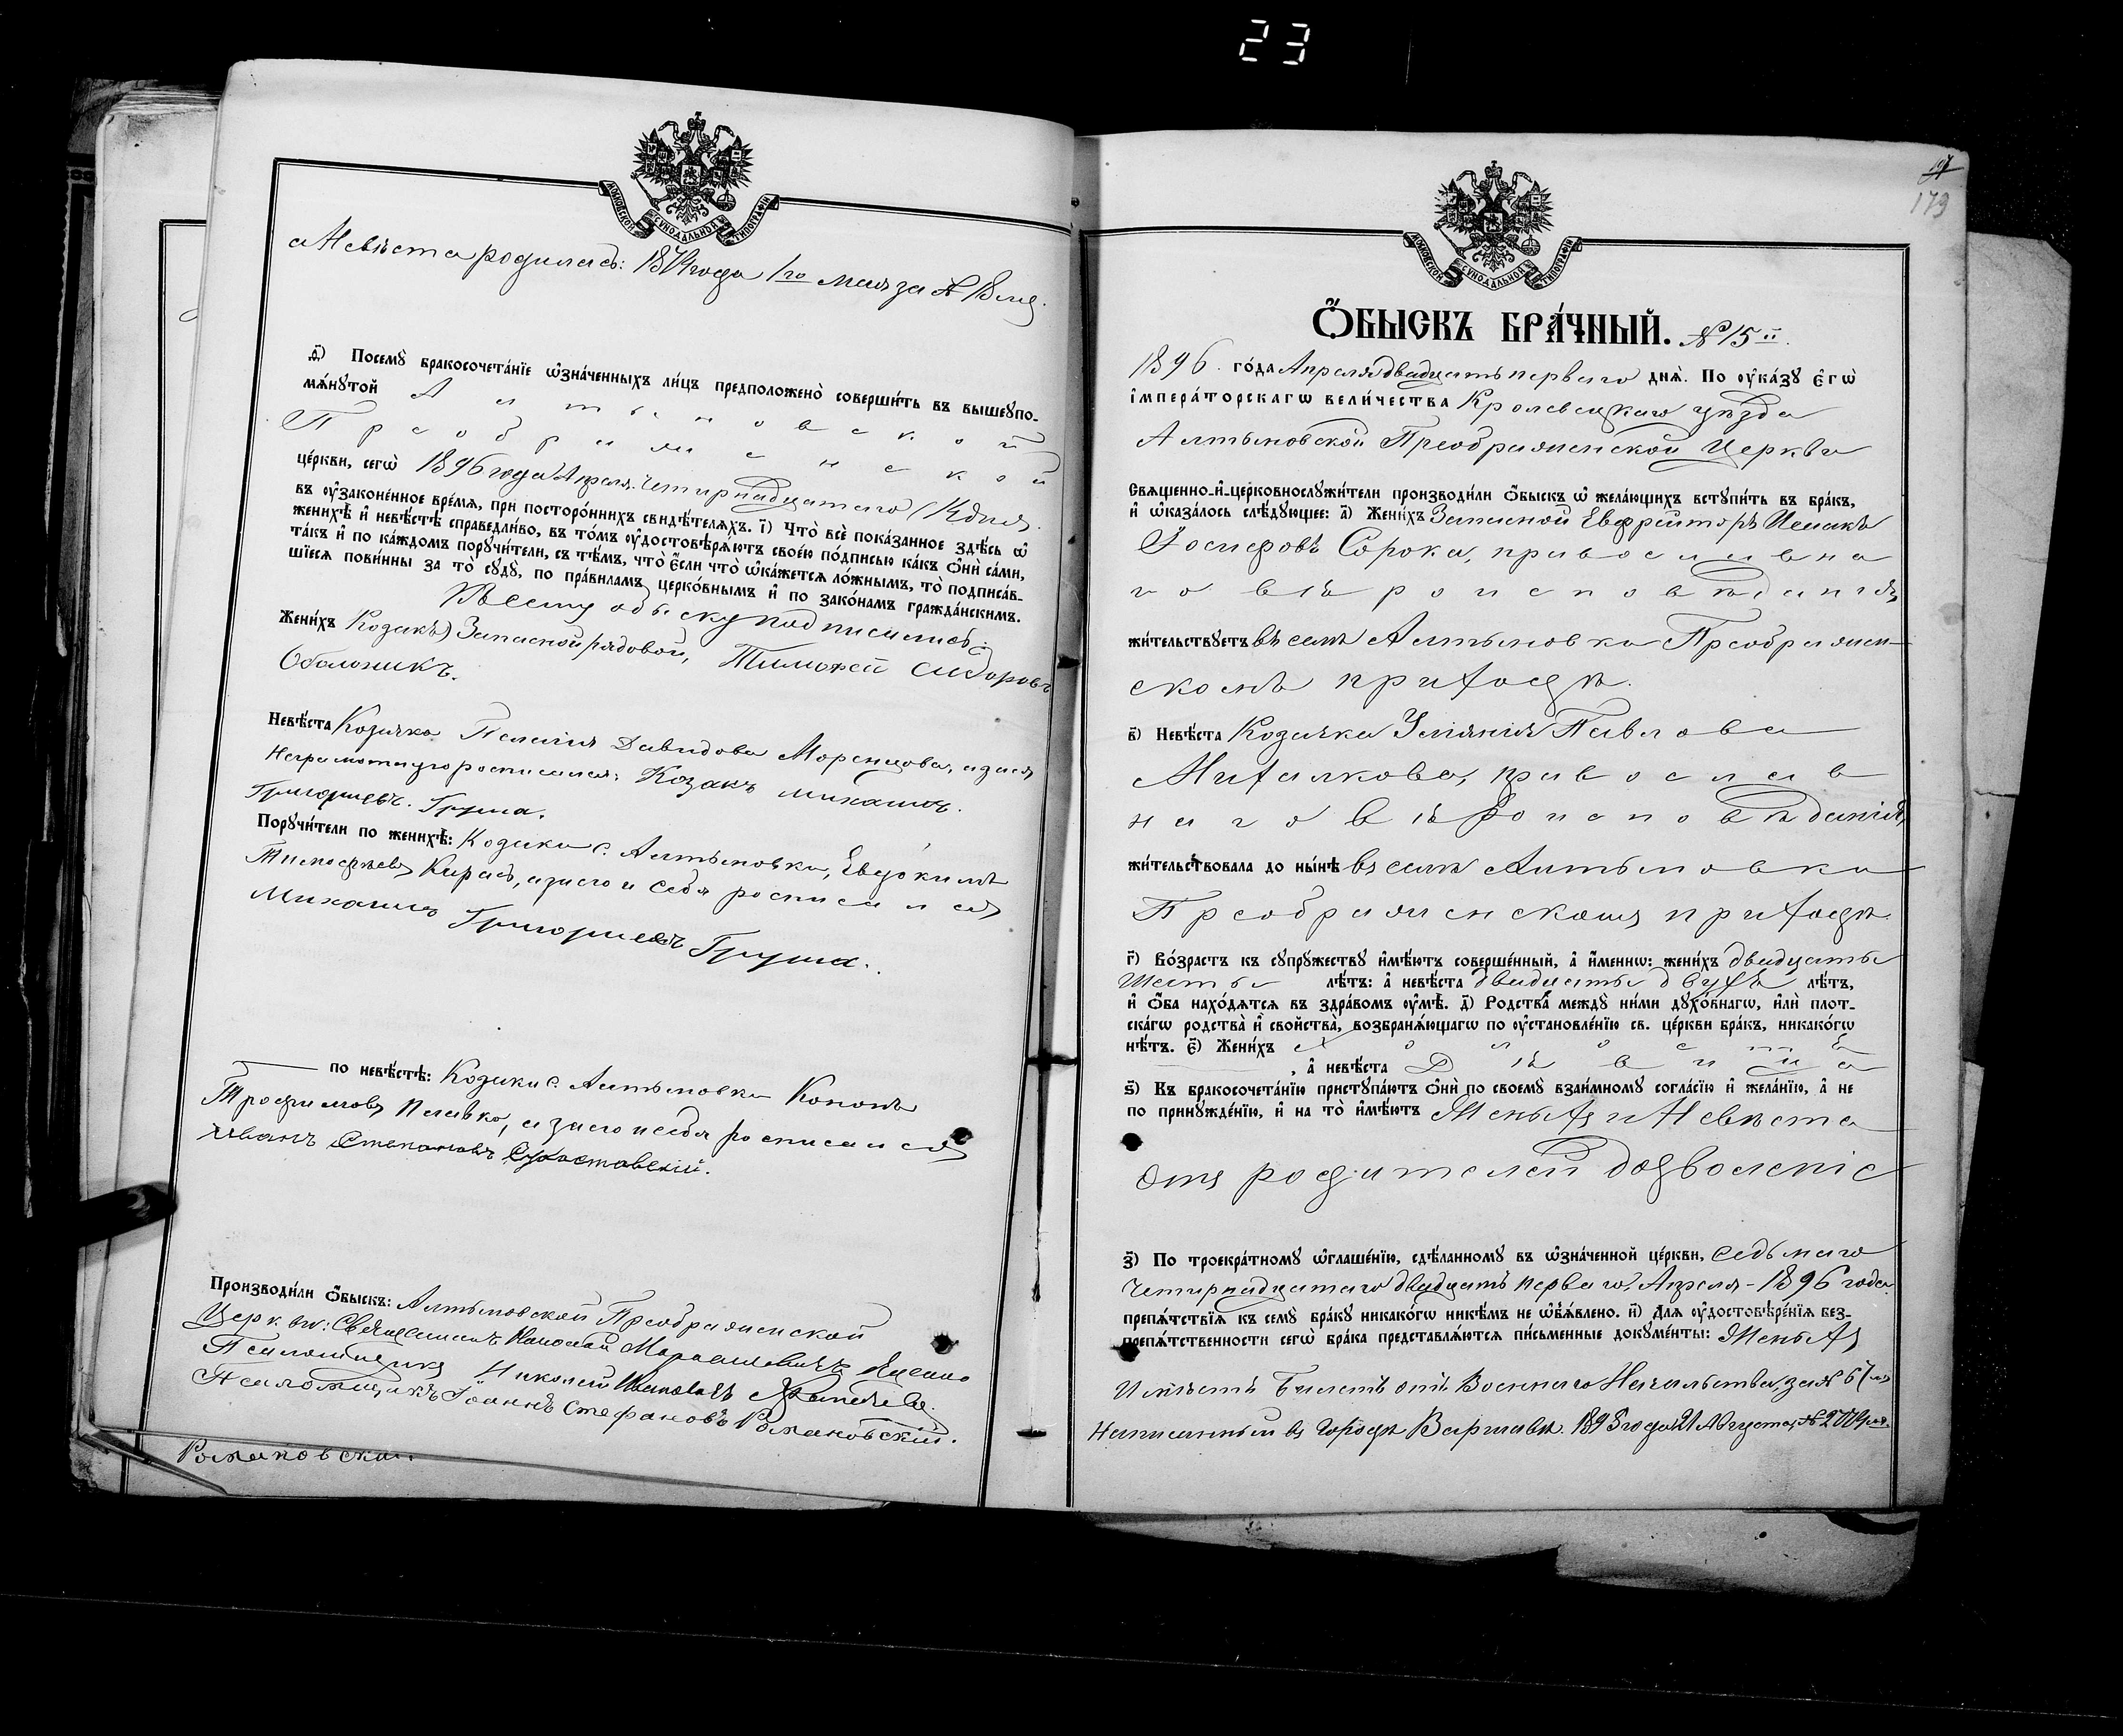 23
МОСКОВСКОЙ СѴНОДАЛЬНОЙ ТИПОГРАФІИ
а Невѣста родилась: 1874 года 1го мая за №
д҃і) Посемꙋ̀ бракосочета́нїе ѡ҆зна́ченныхъ ли́цъ предположено̀ соверши́ть въ вышеꙋпо-
мѧ́нꙋтой Алтыновской
Преображенской
це́ркви, сегѡ̀ 1896 года Апреля Четырнадцатаго дня
въ ᲂу҆зако́ненное вре́мѧ, при посторо́ннихъ свидѣ́телѧхъ. і҃) Что̀ всѐ пока́занное здѣ́сь ѡ҆
женихѣ̀ и҆ невѣ́стѣ справедли́во, въ то́мъ ᲂу҆достовѣрѧ́ютъ свое́ю по́дписью ка́къ ѻ҆нѝ са́ми,
та́къ и҆ по ка́ждомъ порꙋчи́тели, съ тѣ́мъ, что̀ є҆́сли что̀ ѡ҆ка́жетсѧ ло́жнымъ, то̀ подписа́в-
шїесѧ пови́нны за то̀ сꙋдꙋ̀, по пра́виламъ церко́внымъ и҆ по зако́намъ гражда́нскимъ.
К Сему обыску подписались:
Жени́хъ Козакъ Запасной рядовой, Тимофей Сидоровъ
Оболоникъ.
Невѣ́ста Козачка Пелагия Давидова а за нея
Неграмотную росписался: Козакъ Михаилъ
Григориевъ. Груша.
Порꙋчи́тели по женихѣ̀: Козаки с. Алтыновки, Евдокимъ
Тимофеевъ а за его и себя росписался
Михаилъ Григориевъ Груша.
по невѣ́стѣ: Козаки с. Алтыновки Кононъ
Трофимовъ а за его и себя росписался
Иванъ Степановъ
Производи́ли ѻ҆́быскъ: Алтыновской Преображенской
Церкви: Священникъ Николай
Псаломщикъ Николай Ивановъ
Псаломщикъ Іоаннъ Стефановъ Романовскій.
Романовский.
197
179
МОСКОВСКОЙ СѴНОДАЛЬНОЙ ТИПОГРАФІИ
Ѻ҆́БЫСКЪ БРА́ЧНЫЙ. № 15й.
1896. го́да Апреля двадцать перваго днѧ̀. По ᲂу҆ка́зꙋ є҆гѡ̀
і҆мпера́торскагѡ вели́чества Кролевецкаго уѣзда
Алтыновской Преображенской Церкви
Свѧще́нно-и҆-церковнослꙋжи́тели производи́ли ѻ҆́быскъ ѡ҆ жела́ющихъ встꙋпи́ть въ бра́къ,
и҆ ѡ҆каза́лось слѣ́дꙋющее: а҃) Жени́хъ Запасной Ефрейторъ Исаакъ
Іосифовъ Сорока, православна
го вѣроисповѣдания,
жи́тельствꙋетъ въ селѣ Алтыновки Преображен-
скомъ приходѣ.
в҃) Невѣ́ста Козачка Улияния Павлова
Михалкова, православ
наго вѣроисповѣданія,
жи́тельствовала до ны́нѣ въ селѣ Алтыновки
Преображенскомъ приходѣ.
г҃) Во́зрастъ къ сꙋпрꙋжествꙋ и҆мѣ́ютъ соверше́нный, а҆ и҆́меннѡ: жени́хъ двадцать
Шесть лѣ́тъ: а҆ невѣ́ста двадцать двухъ лѣ́тъ,
и҆ ѻ҆́ба нахо́дѧтсѧ въ здра́вомъ ᲂу҆мѣ̀. д҃) Родства̀ междꙋ̀ ни́ми дꙋхо́внагѡ, и҆лѝ плот-
ска́гѡ родства̀ и҆ сво́йства̀, возбранѧ́ющагѡ по ᲂу҆становле́нїю св. це́ркви бра́къ, никако́гѡ
нѣ́тъ. є҃) Жени́хъ Холостъ
, а҆ невѣ́ста Дѣвица
ѕ҃) Въ бракосочета́нїю пристꙋпа́ютъ ѻ҆нѝ по своемꙋ̀ взаи́мномꙋ согла́сїю и҆ жела́нїю, а҆ не
по принꙋжде́нїю, и҆ на то̀ и҆мѣ́ютъ Женыхъ и Невѣста
отъ родителей дозволеніе
з҃) По троекра́тномꙋ ѡ҆глаше́нїю, сдѣ́ланномꙋ въ ѡ҆зна́ченной це́ркви, седьмаго
Четырнадцатаго двадцать перваго, Апреля - 1896 года.
препѧ́тствїѧ къ семꙋ̀ бра́кꙋ никако́гѡ никѣ́мъ не ѡ҆б̾ѧ́влено. и҃) Длѧ ᲂу҆достовѣре́нїѧ без-
препѧ́тственности сегѡ̀ бра́ка представлѧ́ютсѧ пи́сьменные докꙋме́нты: Женыхъ
Имѣетъ Билетъ отъ Военнаго Начальства, за №
Написанный въ Городѣ Варшавѣ. 1895 года 21 Августа,